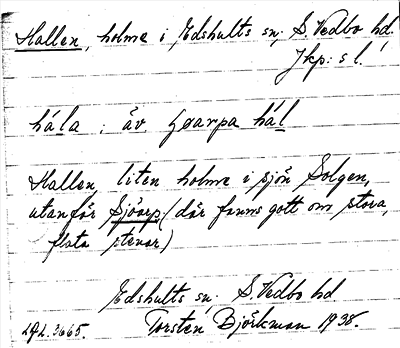 Hallen, holme i Edshults sn, S. Vedbo hd.
Jkp:s l.
hála : äv. hál
Hallen, liten holme i sjön Solgen,
utanför Sjöarp (där fanns gott om stora,
flata stenar)
Edshults sn. S. Vedbo hd
Torsten Björkman 1938.